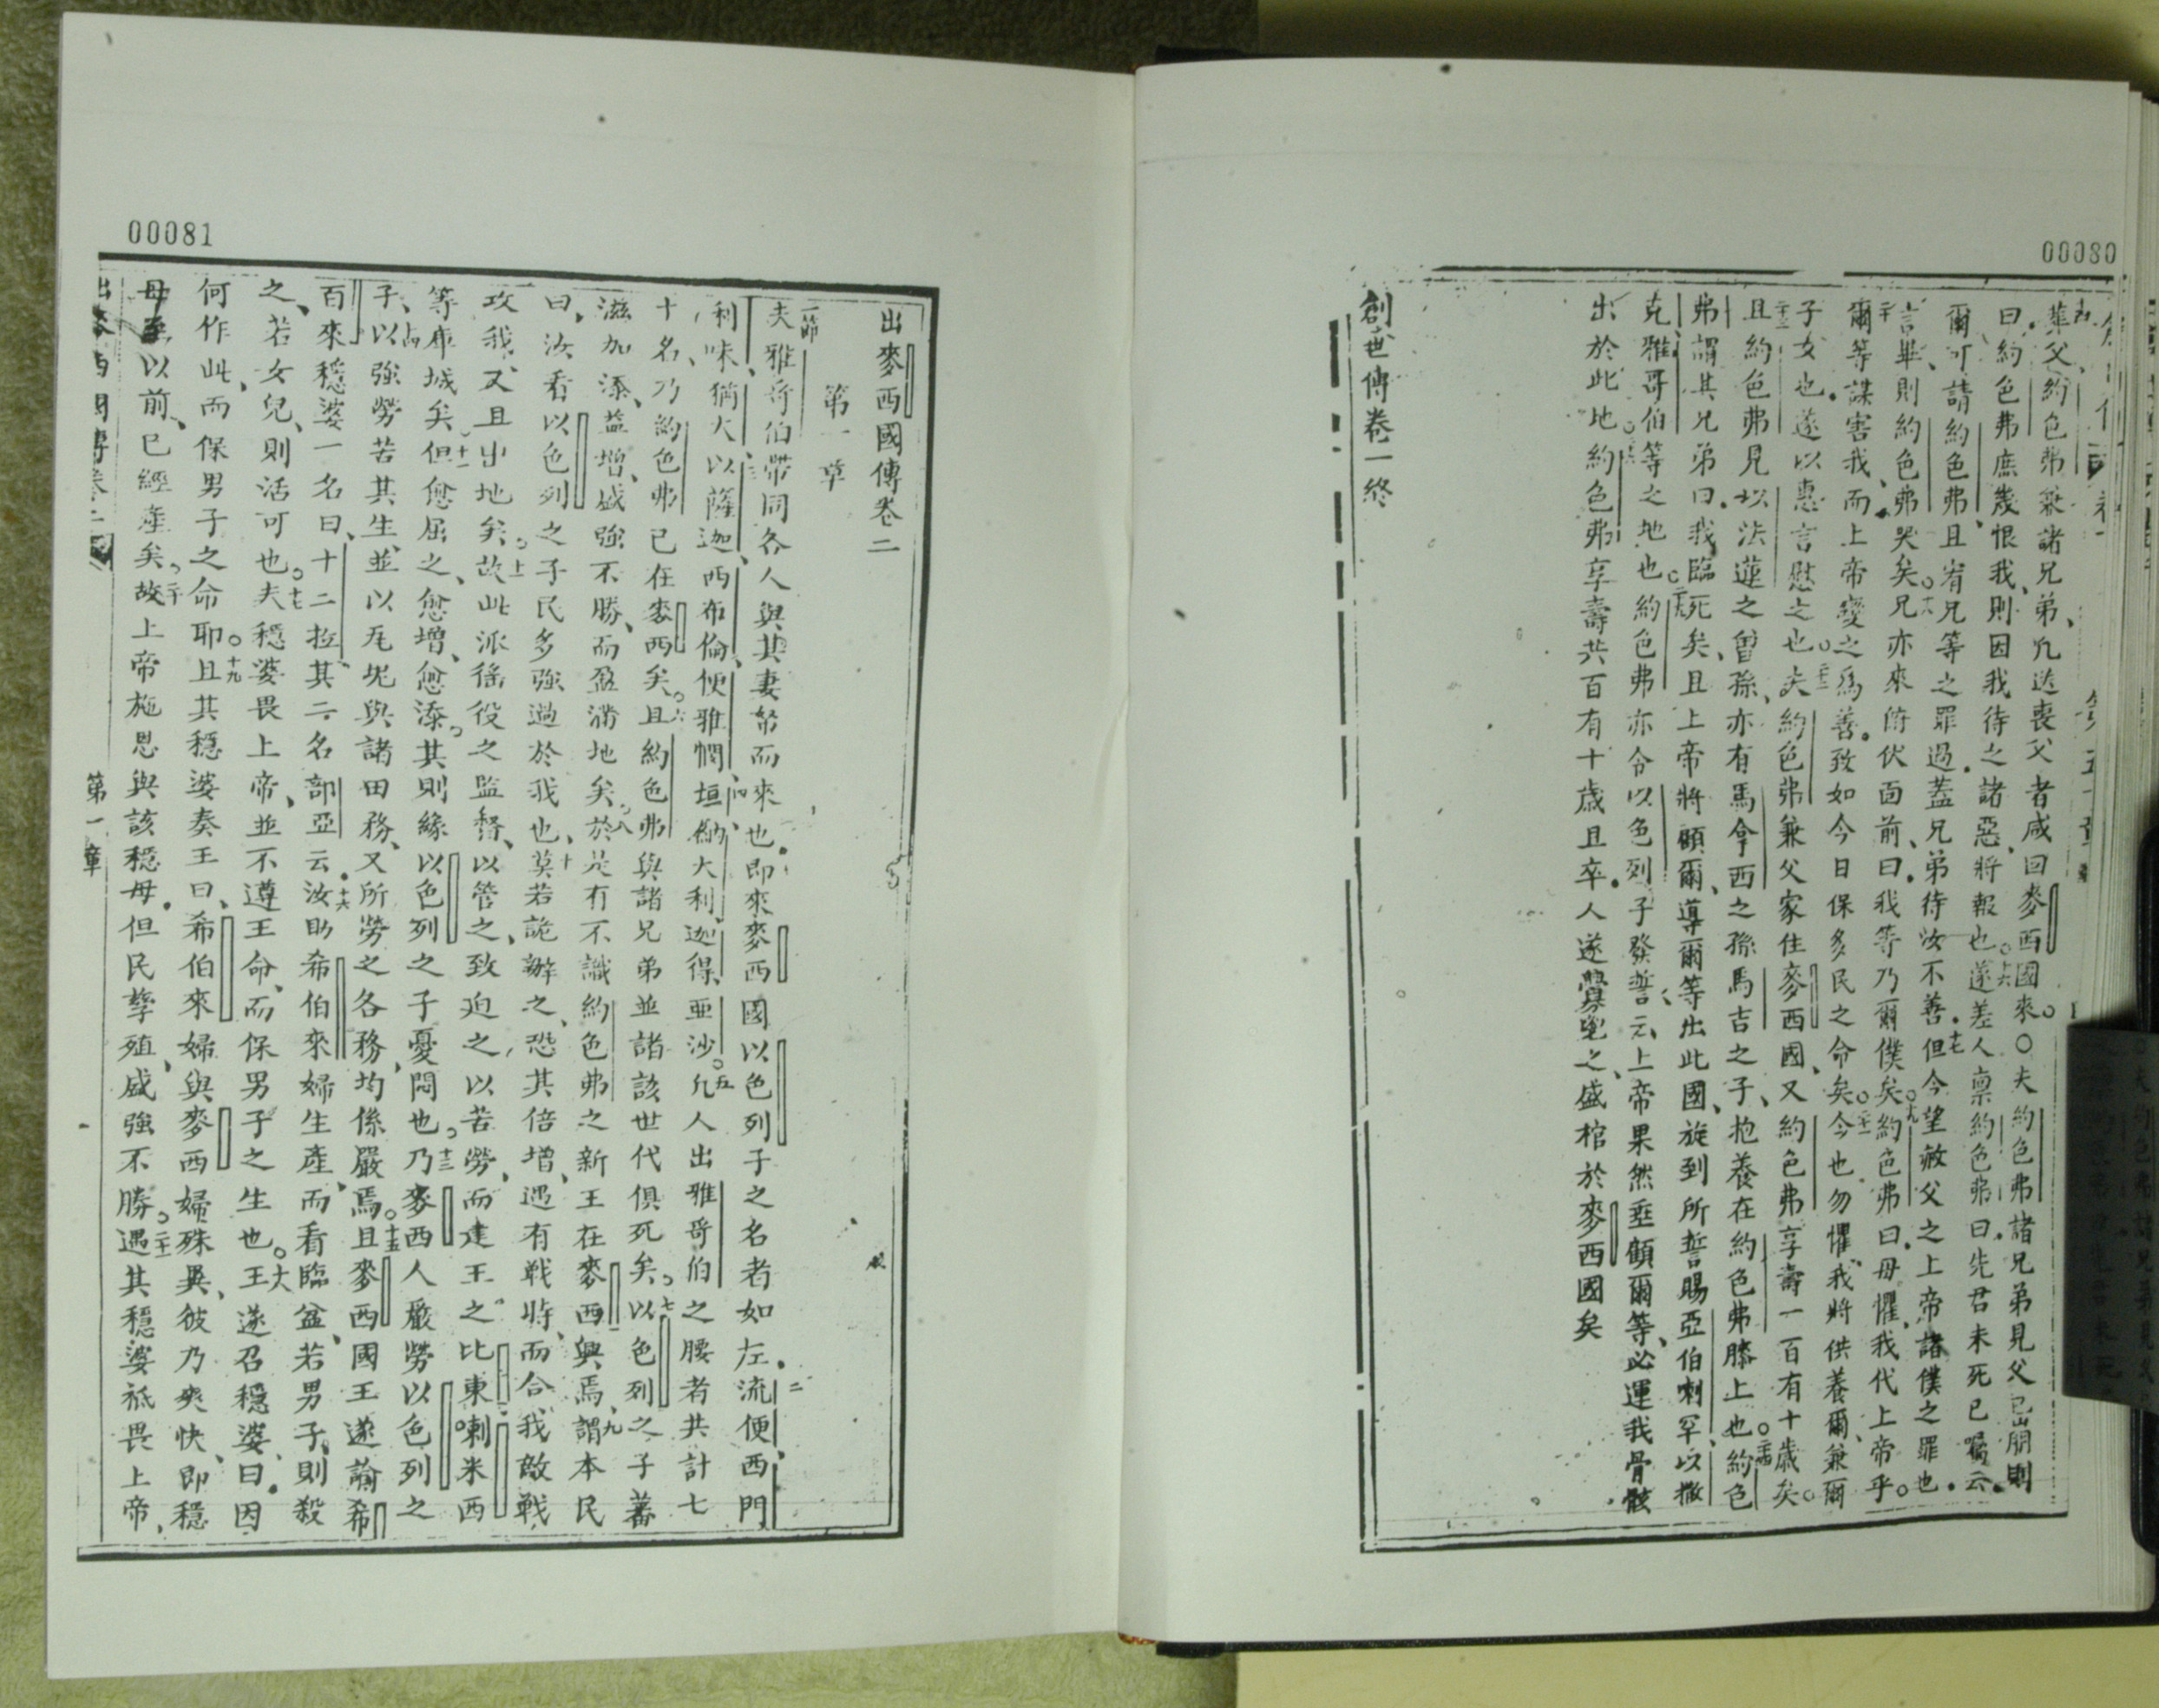 00080
葬父、約色弗兼諸兄弟、凡送喪父者咸回麥西國來。○夫約色弗諸兄弟見父已崩則
曰、約色弗庶幾恨我、則因我待之諸惡、將報也。十六遂差人禀約色弗曰、先君未死已囑云、
爾可請約色弗、且宥兄等之罪過。蓋兄弟待汝不善。十七但今望赦父之上帝、諸僕之罪也。
言畢、則約色弗哭矣。十八兄亦來俯伏面前、曰、我等乃爾僕矣。十九約色弗曰、毋懼、我代上帝乎。
二十爾等謀害我、而上帝變之為善、致如今日保多民之命矣。二十一今也勿懼、我將供養爾、兼爾
子女也、遂以惠言慰之也。二十二夫約色弗兼父家住麥西國、又約色弗享壽一百有十歲矣。
二十三且約色弗見以法蓮之曾孫、亦有馬拿西之孫馬吉之子、抱養在約色弗膝上也。二十四約色
弗謂其兄弟曰、我臨死矣、且上帝將顧爾、導爾等出此國、旋到所誓賜亞伯喇罕、以撒
克、雅哥伯等之地也。二十五約色弗亦令以色列子發誓云、上帝果然垂顧爾等、必運我骨骸
出於此地。二十六約色弗享壽共百有十歲且卒。人遂釁鬯之、盛棺於麥西國矣
創世傳卷一終
00081
出麥西國傳卷二
第一章
一節夫雅哥伯帶同各人與其妻帑而來也。即來麥西國以色列子之名者如左。二流便西門
利味、猶大、三以薩迦、西布倫、便雅憫、四垣、納大利、迦得、亜沙。五凡人出雅哥伯之腰者共計七
十名、乃約色弗已在麥西矣。六且約色弗與諸兄弟並諸該世代俱死矣。七以色列之子蕃
滋加添、益增、盛強不勝、而盈滿地矣。八於是有不識約色弗之新王在麥西興焉、九謂本民
曰、汝看以色列之子民多強過於我也、十莫若詭辦之、恐其倍增、遇有戰時、而合我敵戰
攻我、又且出地矣。十一故此派徭役之監督、以管之、致迫之以苦勞、而建王之比東喇米西
等庫城矣。十二但愈屈之、愈增、愈添。其則緣以色列之子憂悶也。十三乃麥西人嚴勞以色列之
子、十四以強勞苦其生、並以坭與諸田務、又所勞之各務、均係嚴焉。十五且麥西國王遂諭希
百來穩婆一名曰、十二拉其二名部亞、十六云、汝助希伯來婦生產、而看臨盆、若男子、則殺
之、若女兒、則活可也。十七夫穩婆畏上帝、並不遵王命、而保男子之生也。十八王遂召穩婆、曰、因
何作此、而保男子之命耶。十九且其穩婆奏王曰、希伯來婦與麥西婦殊異、彼乃爽快、即穩
母至以前、已經產矣。二十故上帝施恩與該穩母。但民孳殖、盛強不勝。二十一遇其穩婆祗畏上帝、
出麥西國傳卷二 第一章